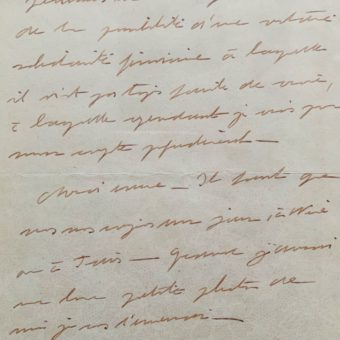 de la possibilité d'une votre
solidarité féminine à laquelle
il n'est pas toujours facile de croire,
à laquelle cependant je crois pour
mon compte profondément —
Merci encore — Il faut que
nous nous voyions un jour, à Nice
ou à Paris — Quand j'aurai
une bonne petite photo de
moi je vous l'enverrai —